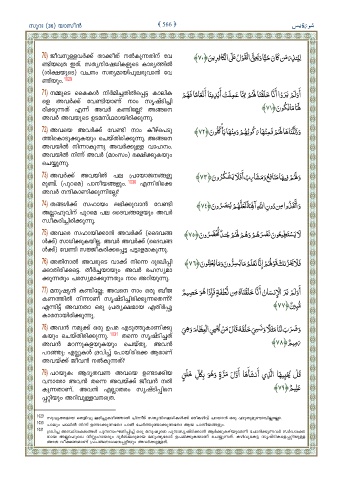 സൂറ (36) യാസീൻ
﴾ 566 ﴿
سُورَةُ يٰسٓ
70) ജീവനുള്ളവർക്ക് താക്കീത് നൽകുന്നതിന് വേ
ണ്ടിയത്രെ ഇത്. സത്യനിഷേധികളുടെ കാര്യത്തിൽ
(ശിക്ഷയുടെ) വചനം സത്യമായിപുലരുവാൻ വേ
ണ്ടിയും.
لِيُنذِرَ مَن كَانَ حَيًّا وَيَحِقَّ الْقَوْلُ عَلَى الْكَافِرِينَ ﴿٧٠﴾
71) നമ്മുടെ കൈകൾ നിർമിച്ചതിൽപ്പെട്ട കാലിക
ളെ അവർക്ക് വേണ്ടിയാണ് നാം സൃഷ്ടിച്ചി
രിക്കുന്നത് എന്ന് അവർ കണ്ടില്ലേ? അങ്ങനെ
അവർ അവയുടെ ഉടമസ്ഥരായിരിക്കുന്നു.
أَوَلَمْ يَرَوْا أَنَّا خَلَقْنَا لَهُم مِّمَّا عَمِلَتْ أَيْدِينَا أَنْعَامًا فَهُمْ
لَهَا مَالِكُونَ ﴿٧١﴾
72) അവയെ അവർക്ക് വേണ്ടി നാം കീഴ്പെടു
ത്തികൊടുക്കുകയും ചെയ്തിരിക്കുന്നു. അങ്ങനെ
അവയിൽ നിന്നാകുന്നു അവർക്കുള്ള വാഹനം.
അവയിൽ നിന്ന് അവർ (മാംസം) ഭക്ഷിക്കുകയും
ചെയ്യുന്നു.
وَذَلَّلْنَاهَا لَهُمْ فَمِنْهَا رَكُوبُهُمْ وَمِنْهَا يَأْكُلُونَ ﴿٧٢﴾
73) അവർക്ക് അവയിൽ പല പ്രയോജനങ്ങളു
മുണ്ട്. (പുറമെ) പാനീയങ്ങളും. എന്നിരിക്കെ
അവർ നന്ദികാണിക്കുന്നില്ലേ?
وَلَهُمْ فِيهَا مَنَافِعُ وَمَشَارِبُ أَفَلَا يَشْكُرُونَ ﴿٧٣﴾
74) തങ്ങൾക്ക് സഹായം ലഭിക്കുവാൻ വേണ്ടി
അല്ലാഹുവിന് പുറമെ പല ദൈവങ്ങളേയും അവർ
സ്വീകരിച്ചിരിക്കുന്നു.
وَاتَّخَذُوا مِن دُونِ اللَّهِ آلِهَةً لَّعَلَّهُمْ يُنصَرُونَ ﴿٧٤﴾
75) അവരെ സഹായിക്കാൻ അവർക്ക് (ദൈവങ്ങ
ൾക്ക്) സാധിക്കുകയില്ല. അവർ അവർക്ക് (ദൈവങ്ങ
ൾക്ക്) വേണ്ടി സജ്ജീകരിക്കപ്പെട്ട പട്ടാളമാകുന്നു.
لَا يَسْتَطِيعُونَ نَصْرَهُمْ وَهُمْ لَهُمْ جُندٌ مُّحْضَرُونَ ﴿٧٥﴾
76) അതിനാൽ അവരുടെ വാക്ക് നിന്നെ ദുഃഖിപ്പി
ക്കാതിരിക്കട്ടെ. തീർച്ചയായും അവർ രഹസ്യമാ
ക്കുന്നതും പരസ്യമാക്കുന്നതും നാം അറിയുന്നു.
فَلَا يَحْزُنكَ قَوْلُهُمْ إِنَّا نَعْلَمُ مَا يُسِرُّونَ وَمَا يُعْلِنُونَ ﴿٧٦﴾
77) മനുഷ്യൻ കണ്ടില്ലേ; അവനെ നാം ഒരു ബീജ
കണത്തിൽ നിന്നാണ് സൃഷ്ടിച്ചിരിക്കുന്നതെന്ന്?
എന്നിട്ട് അവനതാ ഒരു പ്രത്യക്ഷമായ എതിർപ്പു
കാരനായിരിക്കുന്നു.
أَوَلَمْ يَرَ الْإِنسَانُ أَنَّا خَلَقْنَاهُ مِن نُّطْفَةٍ فَإِذَا هُوَ خَصِيمٌ
مُّبِينٌ ﴿٧٧﴾
78) അവൻ നമുക്ക് ഒരു ഉപമ എടുത്തുകാണിക്കു
കയും ചെയ്തിരിക്കുന്നു. തന്നെ സൃഷ്ടിച്ചത്
അവൻ മറന്നുകളയുകയും ചെയ്തു. അവൻ
പറഞ്ഞു: എല്ലുകൾ ദ്രവിച്ച് പോയിരിക്കെ ആരാണ്
അവയ്ക്ക് ജീവൻ നൽകുന്നത്?
وَضَرَبَ لَنَا مَثَلًا وَنَسِيَ خَلْقَهُ قَالَ مَن يُحْيِي الْعِظَامَ وَهِيَ
رَمِيمٌ ﴿٧٨﴾
79) പറയുക: ആദ്യതവണ അവയെ ഉണ്ടാക്കിയ
വനാരോ അവൻ തന്നെ അവയ്ക്ക് ജീവൻ നൽ
കുന്നതാണ്. അവൻ എല്ലാതരം സൃഷ്ടിപ്പിനെ
പ്പറ്റിയും അറിവുള്ളവനത്രെ.
قُلْ يُحْيِيهَا الَّذِي أَنشَأَهَا أَوَّلَ مَرَّةٍ وَهُوَ بِكُلِّ خَلْقٍ
عَلِيمٌ ﴿٧٩﴾